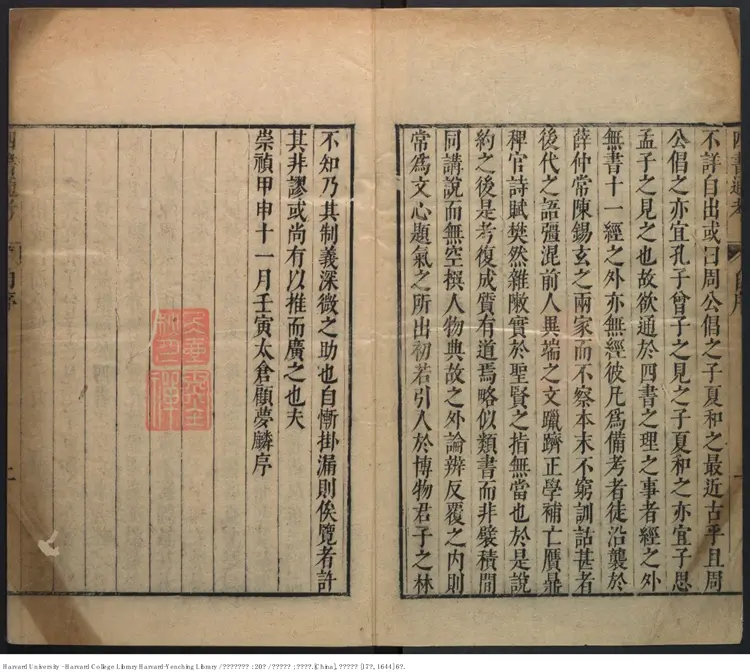 不詳自出或曰周公倡之子夏和之最近古乎且周
公倡之亦宜孔子曾子之見之子夏和之亦宜子思
孟子之見之也故欲通於四書之理之事者經之外
無書十一經之外亦無經彼凡爲備考者徒沿襲於
薛仲常陳錫玄之兩家而不察本末不窮訓詁甚者
後代之語彊混前人異端之文躐躋正學補亡贋鼎
稗官詩賦樊然雜敶實於聖賢之指無當也於是說
約之後是考復成質有道焉略似類書而非襞積閒
同講說而無空模人物典故之外論辨反覆之內則
常爲文心題氣之所出初若引人於博物君子之林
不知乃其制義深微之助也自慚掛漏則俟覽者許
其非謬或尚有以推而廣之也夫
崇禎甲申十一月壬寅太倉顧夢麟序
四書通考
自序
Harvard University - Harvard College Library Harvard-Yenching Library / ??????? : 20? / ????? ; ????.[China], ????? [17?, 1644] 6?.